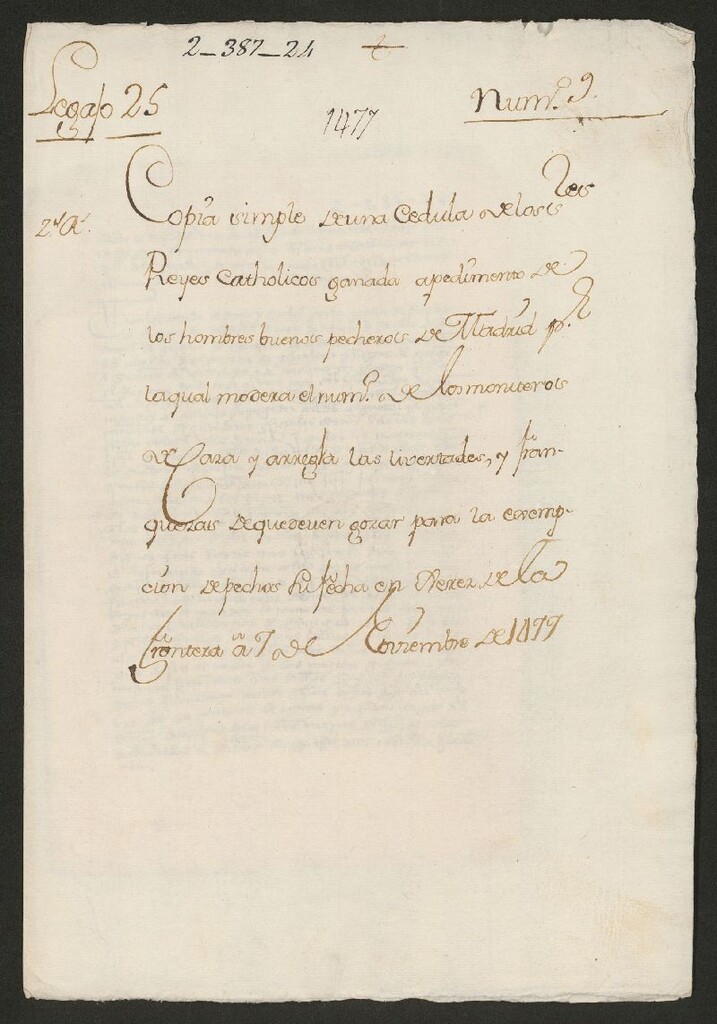 2_387_24
Legajo 25
Num.º 9.
1477
2.ª A.
Copia simple de una Cedula de los Sres
Reyes Catholicos ganada a pedimento de
los hombres buenos pecheros de Madrid p.r
la qual modera el num.º de los monteros
de Caza y arregla las livertades, y fran-
quezas de que deven gozar para la exemp-
cion de pechos su fecha en Xerez de la
Frontera a 7 de Noviembre de 1477